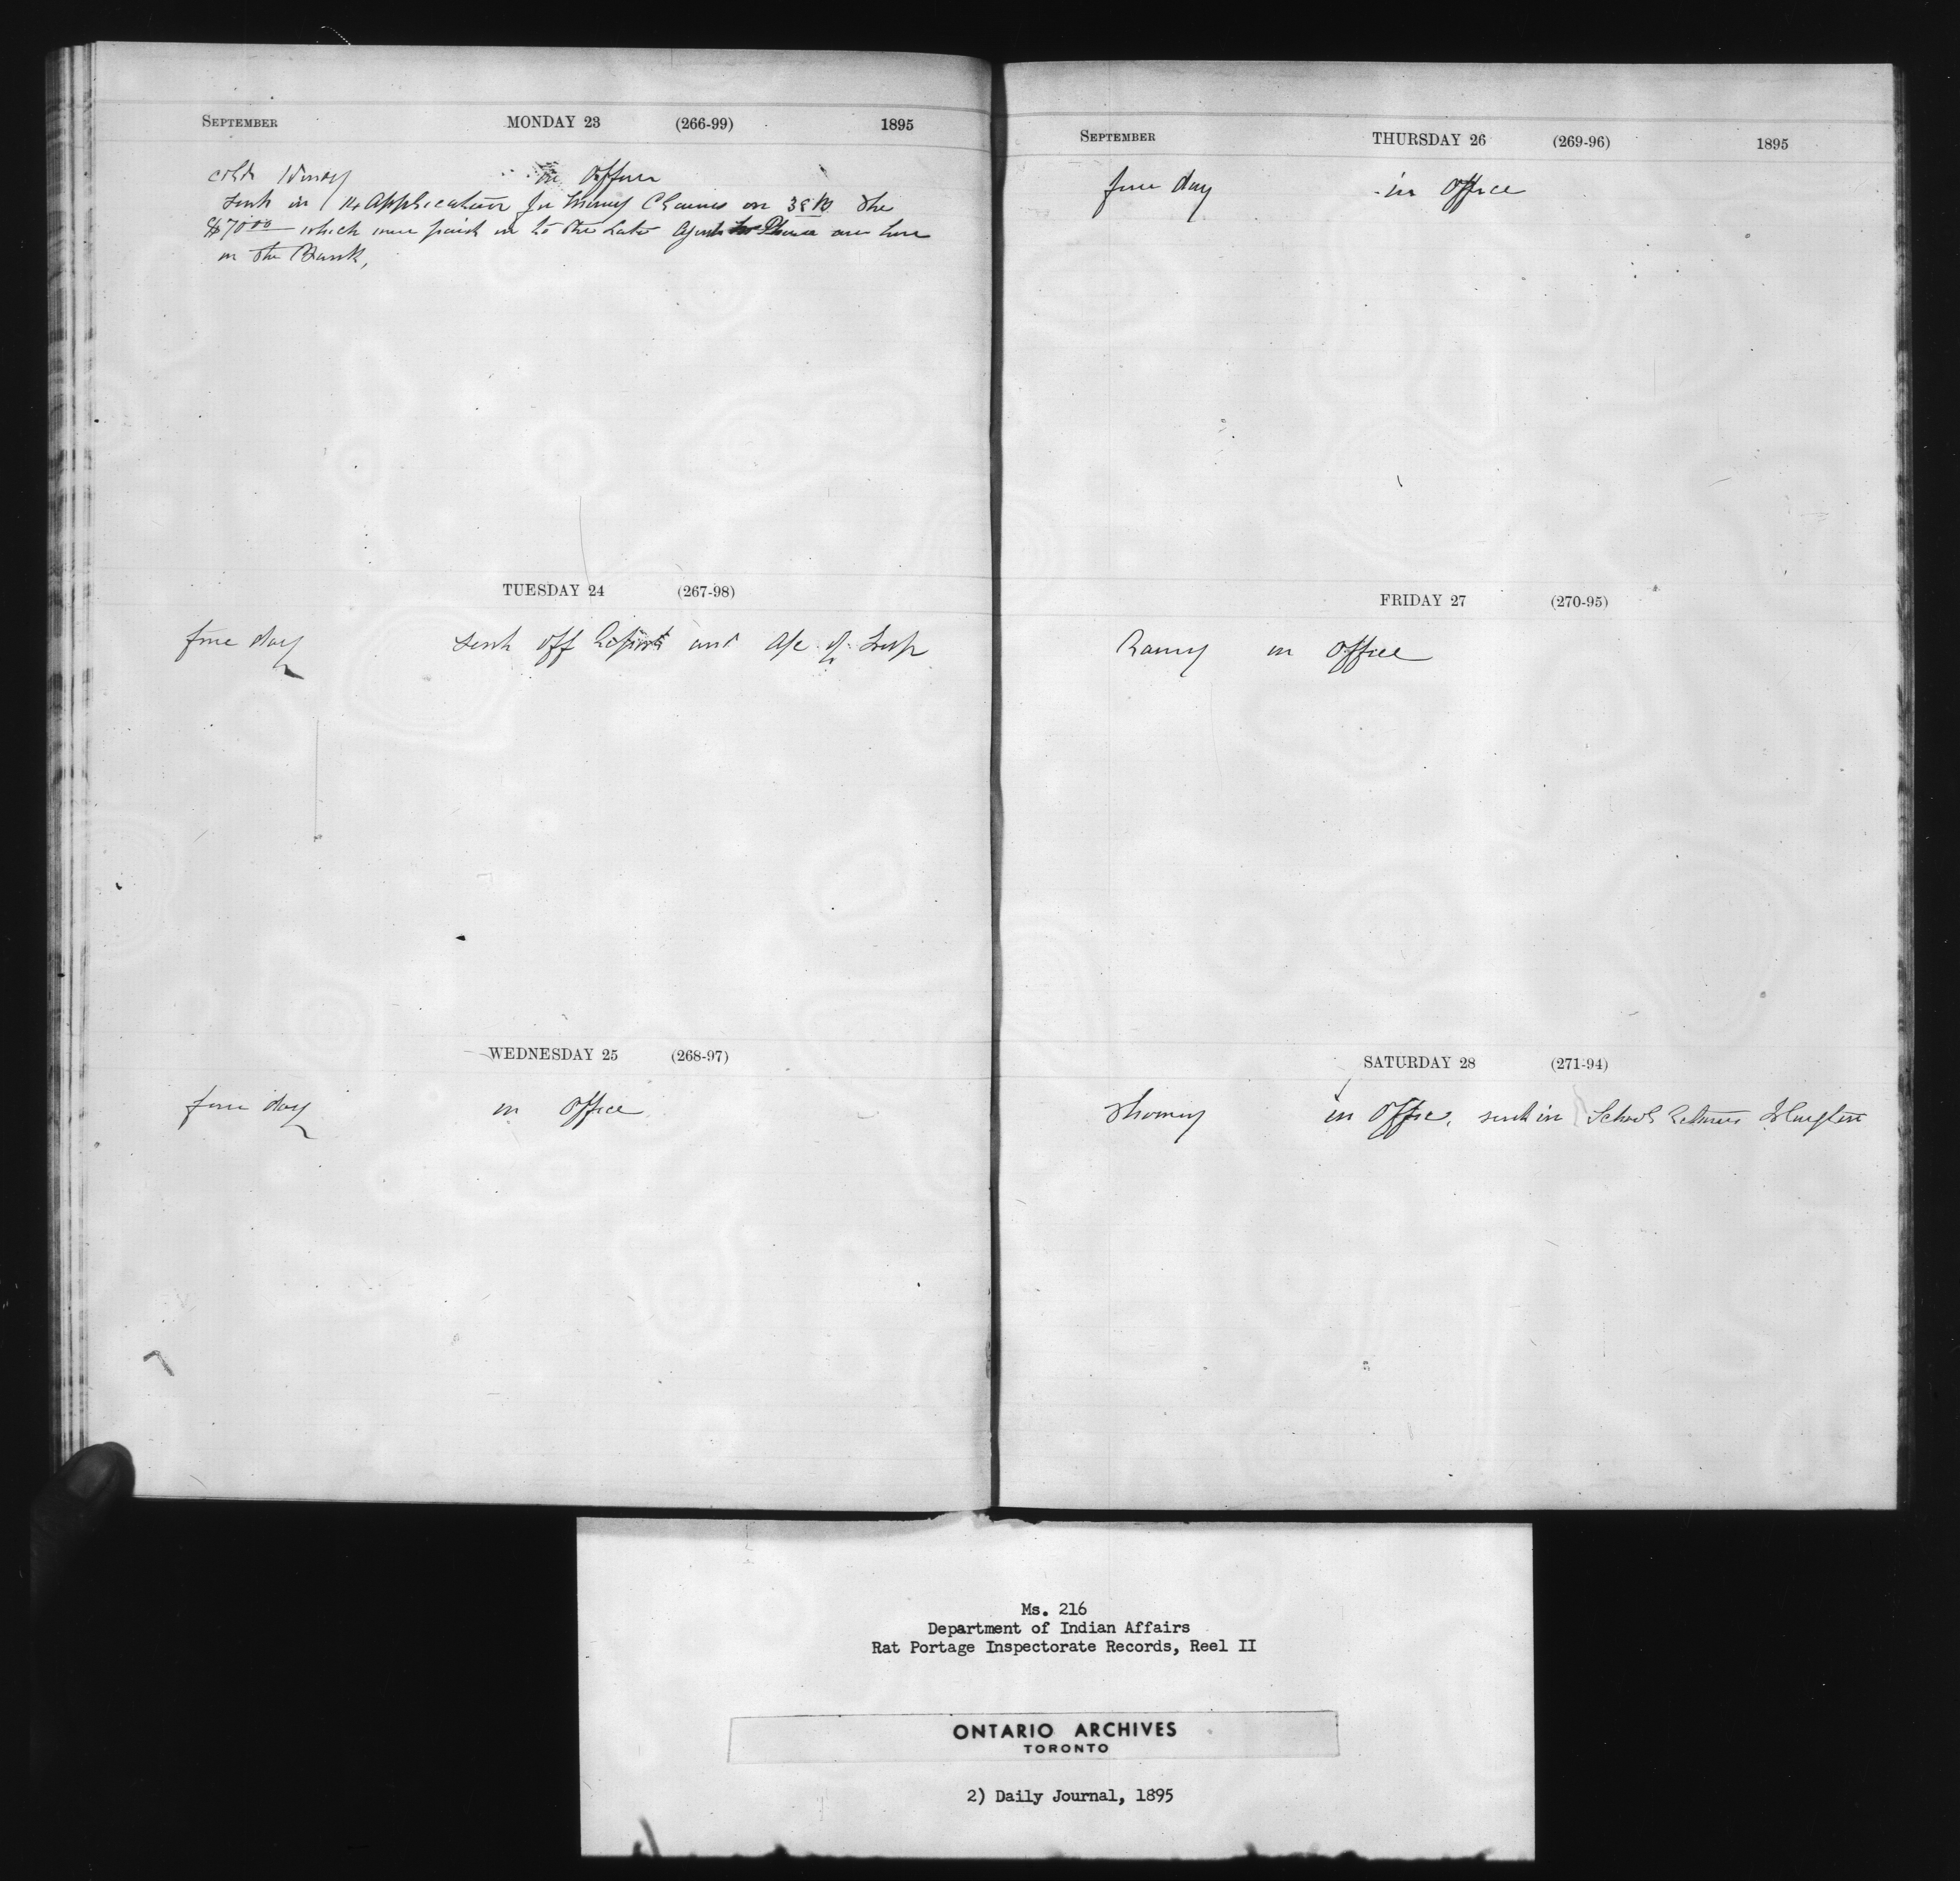 SEPTEMBER MONDAY 23 (266-99) 1895
cold Windy in Office
Sent in 14 Application for Mining Claims on 38B The
$7000 which were paid in to the late Agent are here
in the Bank,
TUESDAY 24 (267-98)
fine day sent off Reports and a/c of Insp
WEDNESDAY 25 (268-97)
fine day in Office
SEPTEMBER THURSDAY 26 (269-96) 1895
fine day in Office
FRIDAY 27 (270-95)
Rainy in Office
SATURDAY 28 (271-94)
in Office, sent in School Returns
Ms. 216
Department of Indian Affairs
Rat Portage Inspectorate Records, Reel II
ONTARIO ARCHIVES
TORONTO
2) Daily Journal, 1895